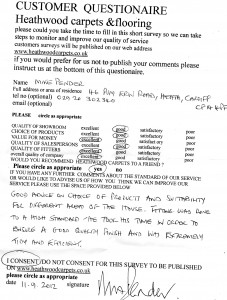 CUSTOMER QUESTIONAIRE
Heathwood carpets &flooring
please could you take the time to fill in this short survey so we can take
steps to monitor and improve our quality of service
customers surveys will be published on our web address
www.heathwoodcarpets.co.uk
if you would prefer for us not to publish your comments please
instruct us at the bottom of this questionaire.
Name MIKE PENDER
Full address or area of residence 46 PEN ROAD, HEATH, CARDIFF
tel no (optional) 029 20 302360
email (optional)
PLEASE circle as appropriate
QUALITY OF SHOWROOM excellent good satisfactory poor
CHOICE OF PRODUCTS excellent good satisfactory poor
VALUE FOR MONEY excellent good satisfactory poor
QUALITY OF SALESPERSONS excellent good satisfactory poor
QUALITY OF FITTERS excellent good satisfactory poor
Overall opinion of company excellent good satisfactory poor
WOULD YOU RECOMMEND HEATHWOOD CARPETS TO A FRIEND ?
Please circle as appropriate yes no
IF YOU HAVE ANY FURTHER COMMENTS ABOUT THE STANDARD OF OUR SERVICE
OR WOULD LIKE TO ADVISE US OF HOW YOU THINK WE CAN IMPROVE OUR
SERVICE PLEASE USE THE SPACE PROVIDED BELOW
GOOD ADVICE ON CHOICE OF PRODUCTS AND SUITABILITY
FOR DIFFERENT AREAS OF THE HOUSE. FITTING WAS DONE
TO A HIGH STANDARD - HE TOOK HIS TIME IN ORDER TO
ENSURE A GOOD QUALITY FINISH AND WAS EXTREMELY
TIDY AND EFFICIENT.
I CONSENT/DO NOT CONSENT FOR THIS SURVEY TO BE PUBLISHED
ON www.heathwoodcarpets.co.uk
please circle as appropriate
date 11.9.2012 signature Mike Pender